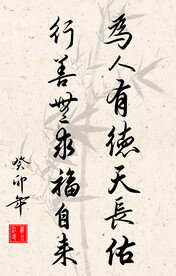 為人有德天長佑
行善無求福自来
癸卯年